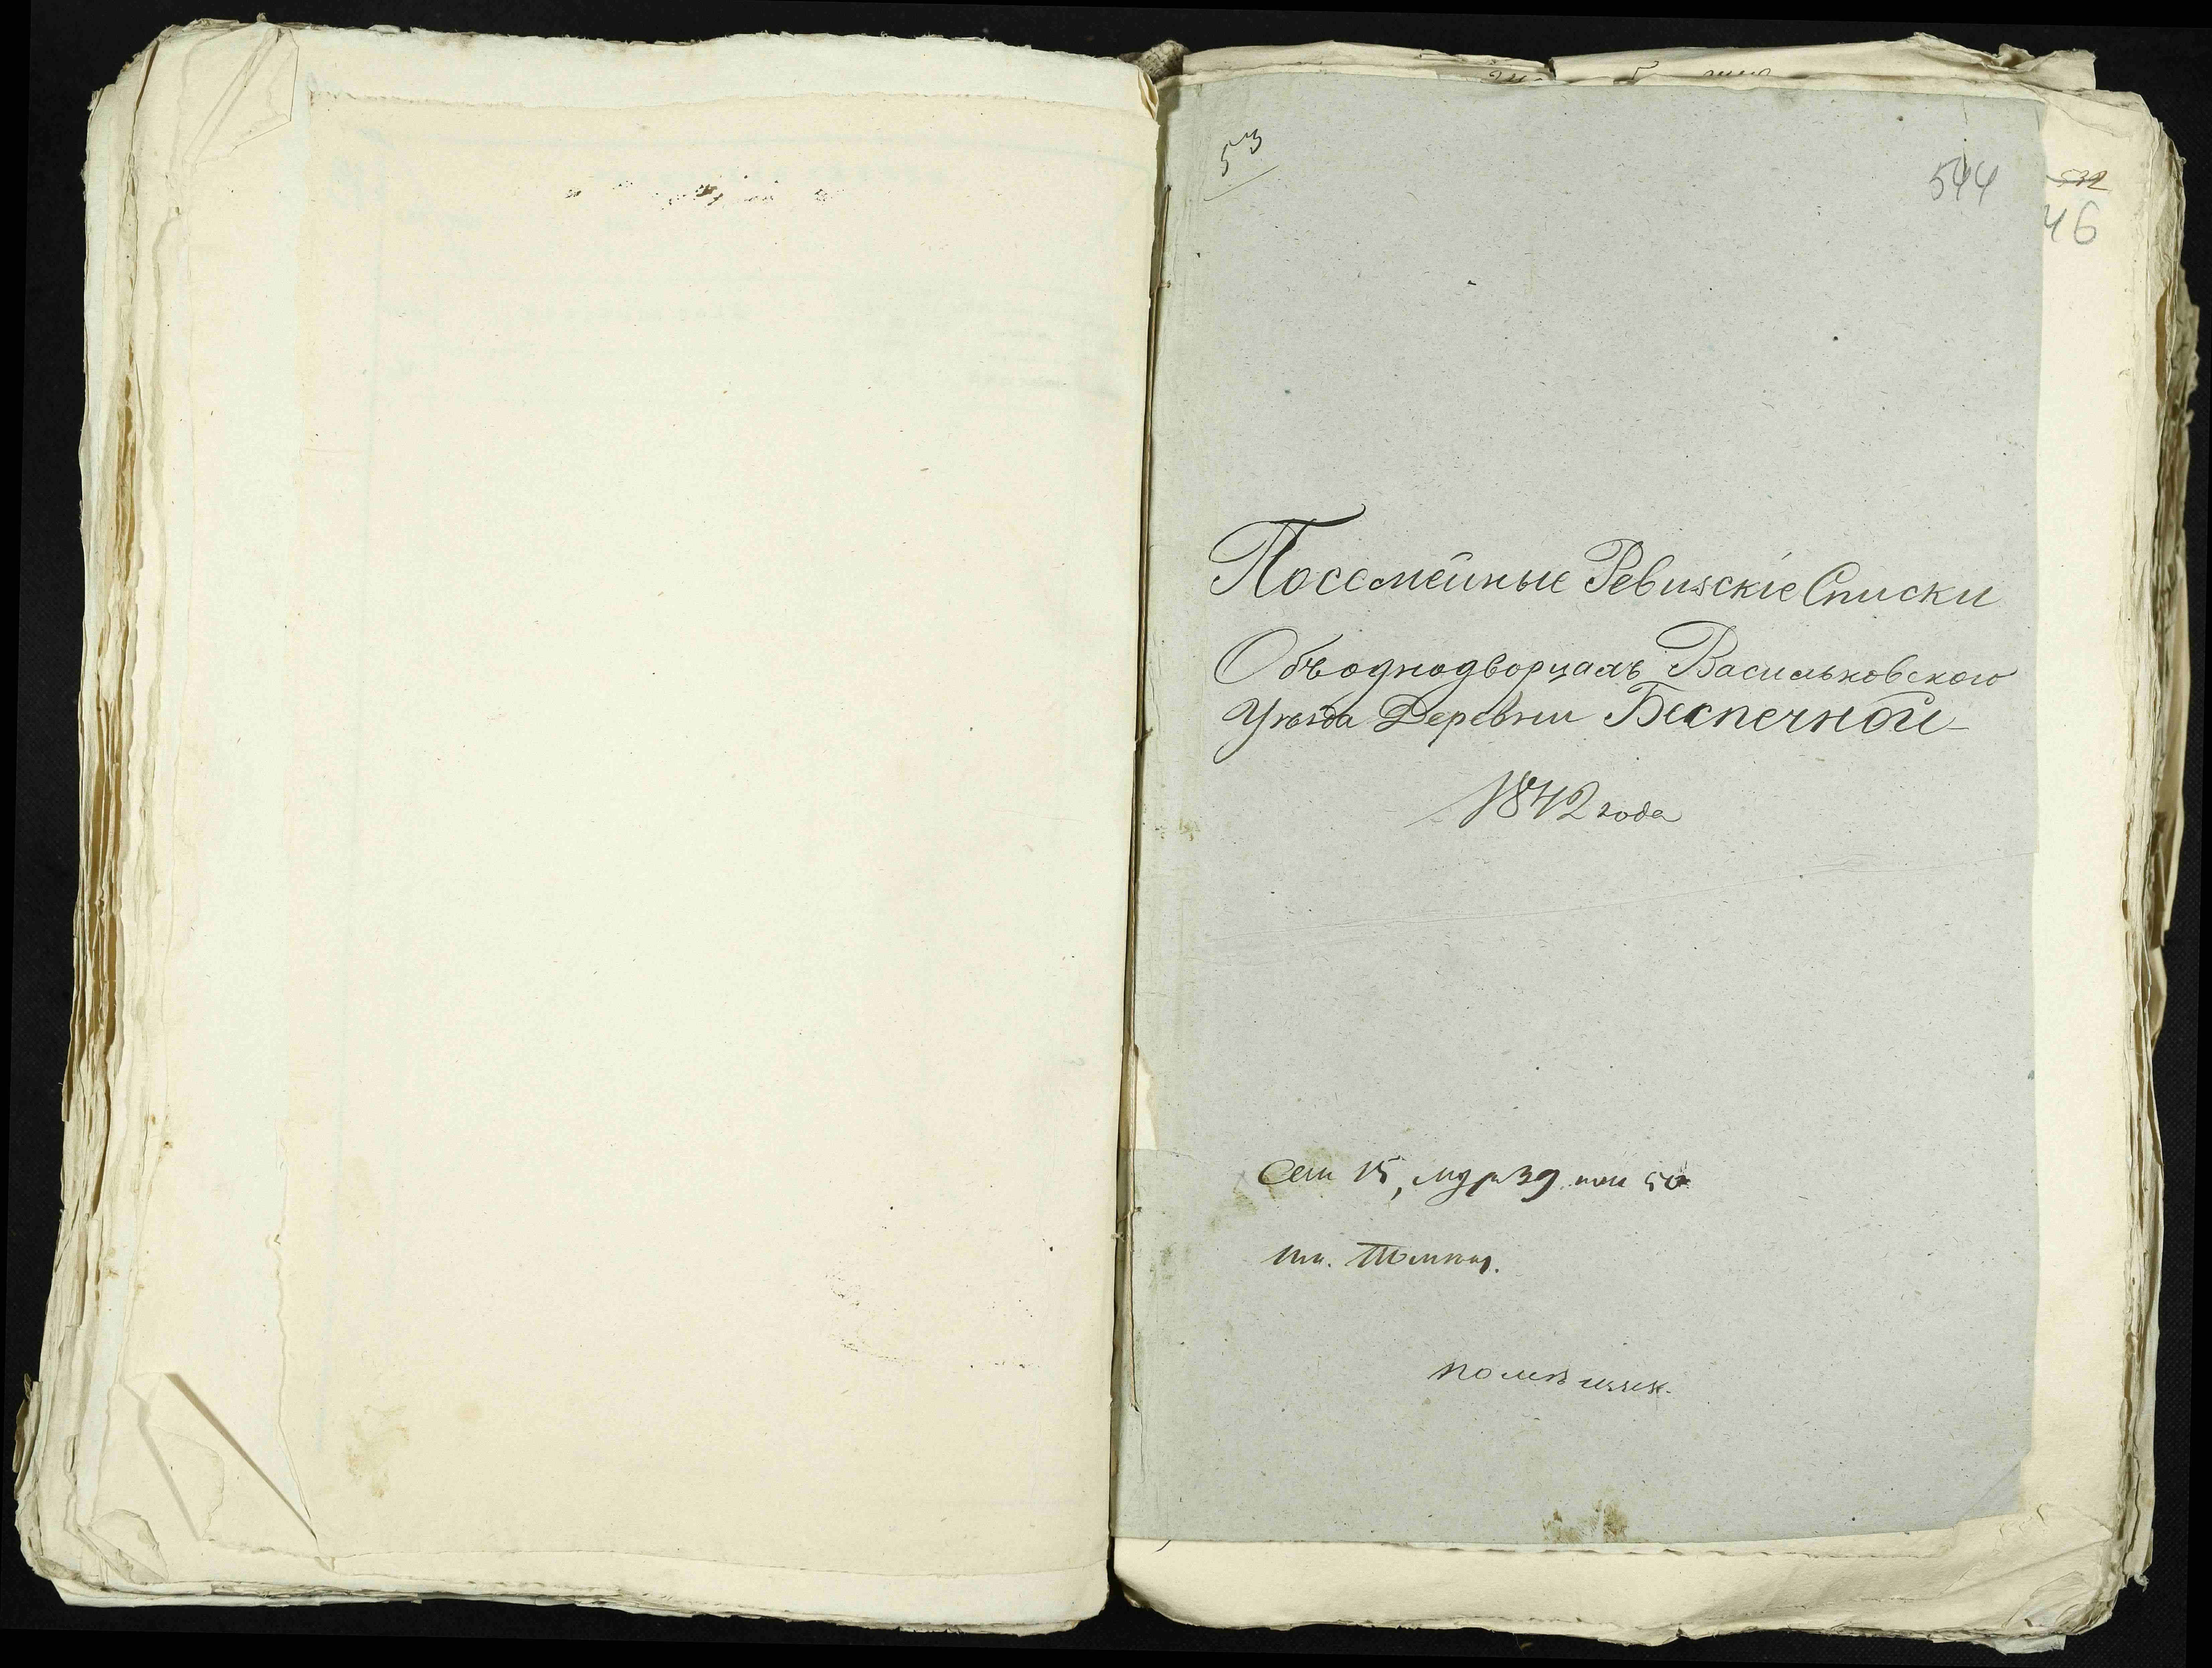 53
544
532
46
Посемейные Ревизскіе Списки
Объ однодворцахъ Васильковского
Уѣзда Деревни Беспечной
1842 года
Сем 15, муж 39 жен 50
помѣщик.